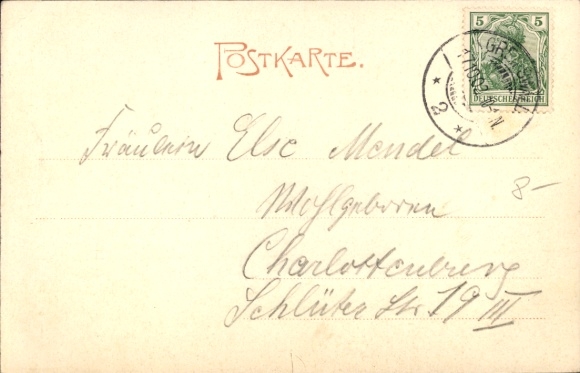 POSTKARTE.
5 5
DEUTSCHES REICH
* 2 *
Fräulein Else Mendel
Wohlgeboren
8-
Charlottenberg
Schlüter Str. 19 III